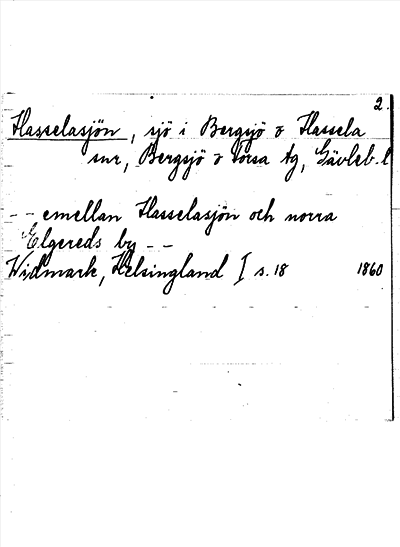 2.
Hasselasjön, sjö i Bergsjö o Hassela
snr, Bergsjö o Forsa tg, Gävleb. l
- - emellan Hasselasjön och norra
Elgereds by - -
Widmark, Helsingland I s. 18 1860